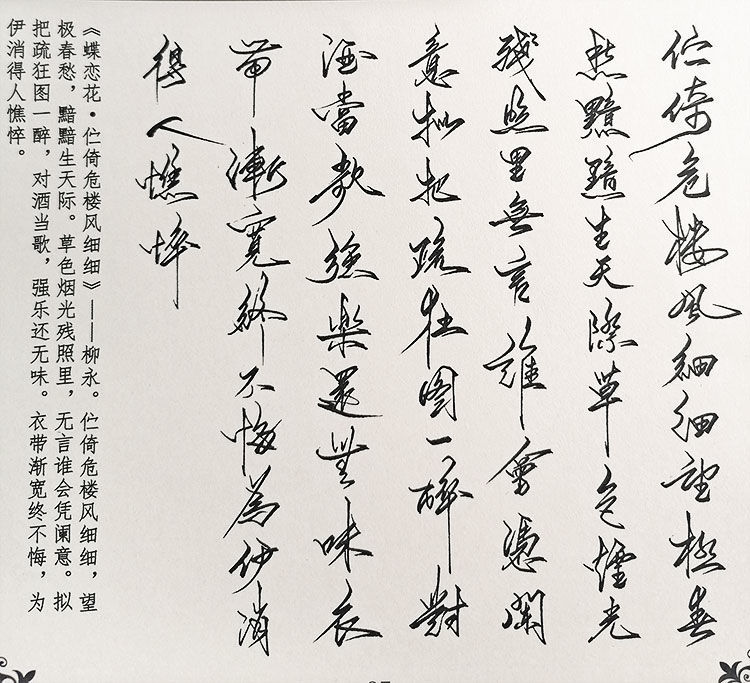 伫倚危楼風細細望極春
愁黯黯生天際草色煙光
殘照里無言誰會憑闌
意拟把疏狂图一醉對
酒當歌強樂還無味衣
帶漸寬終不悔為伊消
得人憔悴
《蝶恋花·伫倚危楼风细细》——柳永。伫倚危楼风细细，望
极春愁，黯黯生天际。草色烟光残照里，无言谁会凭阑意。拟
把疏狂图一醉，对酒当歌，强乐还无味。衣带渐宽终不悔，为
伊消得人憔悴。